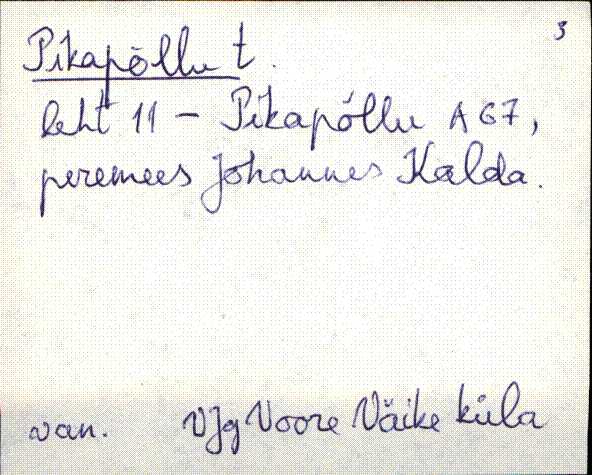 3
Pikapõllu t.
leht 11 - Pikapõllu A67,
peremees Johannes Kalda.
van. VJg Voore Väike küla